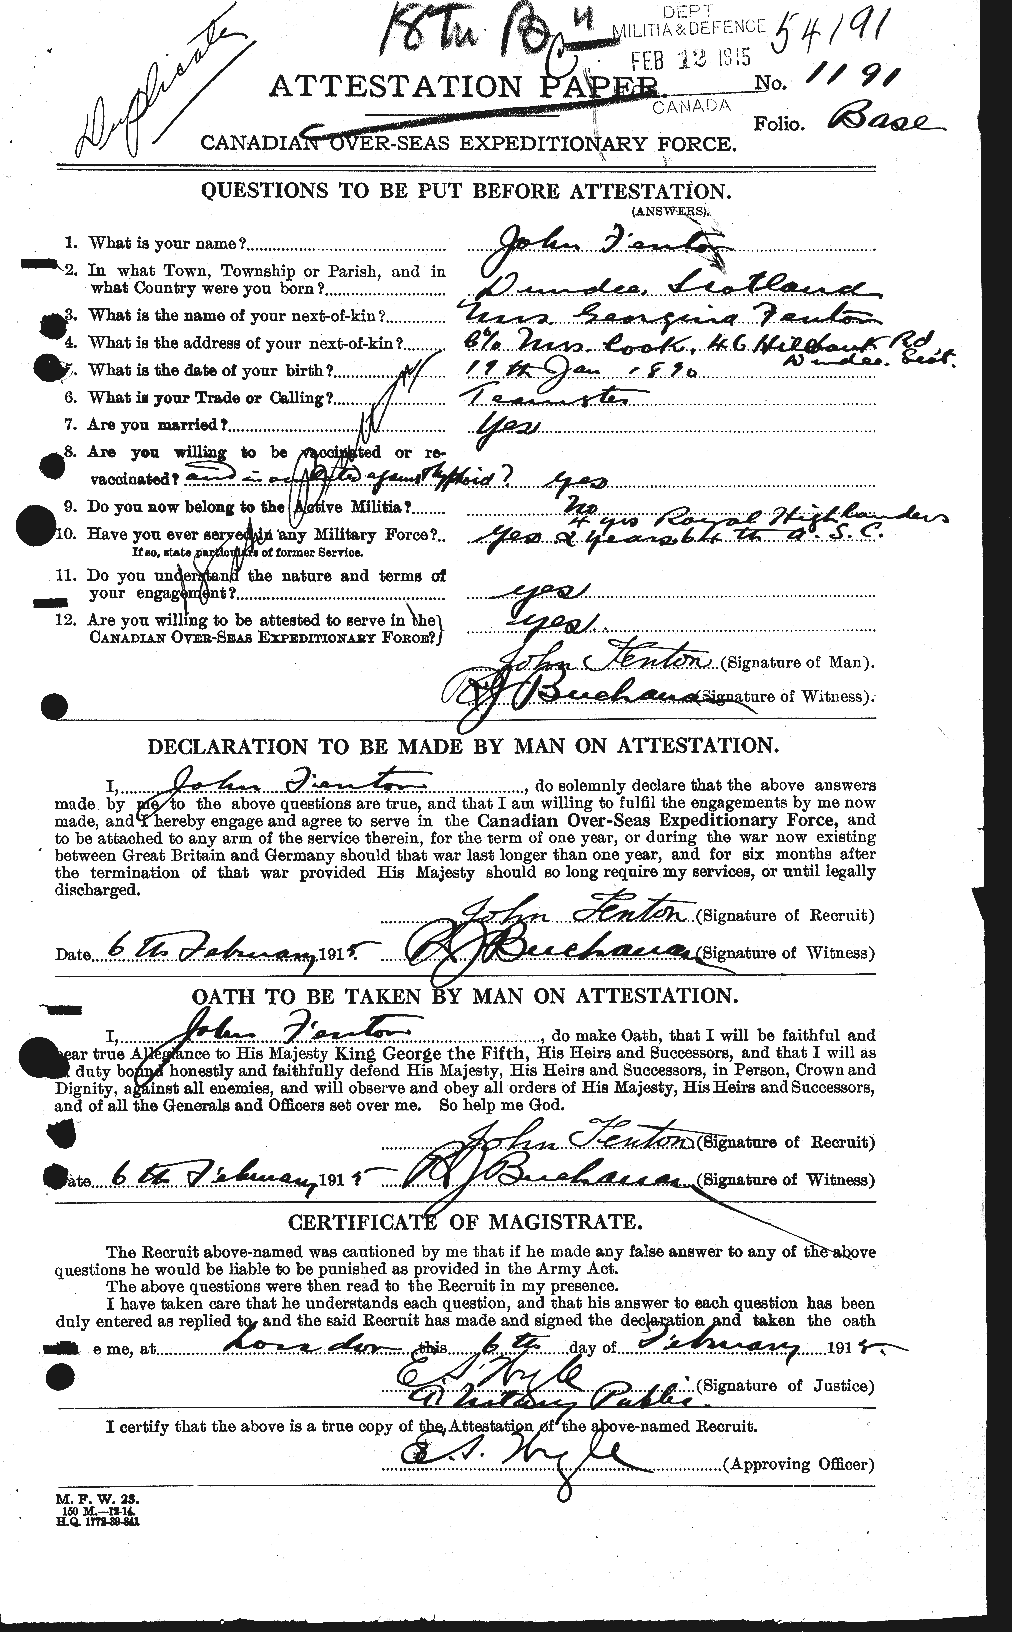 Duplicate
18th Bn
DEPT
MILITIA & DEFENCE
FEB 12 1915
CANADA
54191
ATTESTATION PAPER.
No. 1191
Folio. Base
CANADIAN OVER-SEAS EXPEDITIONARY FORCE.
QUESTIONS TO BE PUT BEFORE ATTESTATION.
(ANSWERS).
1. What is your name? John Fenton
2. In what Town, Township or Parish, and in
what Country were you born? Dundee, Scotland
3. What is the name of your next-of-kin? Mrs Georgina Fenton
4. What is the address of your next-of-kin? C/o Mrs Cook, 46 Hillbank Rd
Dundee. Scot.
5. What is the date of your birth? 19th Jan 1890
6. What is your Trade or Calling? Teamster
7. Are you married? Yes
8. Are you willing to be vaccinated or re-
vaccinated? and inoculated against typhoid? Yes
9. Do you now belong to the Active Militia? No
4 yrs Royal Highlanders
10. Have you ever served in any Military Force? Yes 2 years 64th A.S.C.
If so, state particulars of former Service.
11. Do you understand the nature and terms of
your engagement? yes
12. Are you willing to be attested to serve in the
CANADIAN OVER-SEAS EXPEDITIONARY FORCE? yes.
John Fenton (Signature of Man).
R J Buchanan (Signature of Witness).
DECLARATION TO BE MADE BY MAN ON ATTESTATION.
I, John Fenton, do solemnly declare that the above answers
made by me to the above questions are true, and that I am willing to fulfil the engagements by me now
made, and I hereby engage and agree to serve in the Canadian Over-Seas Expeditionary Force, and
to be attached to any arm of the service therein, for the term of one year, or during the war now existing
between Great Britain and Germany should that war last longer than one year, and for six months after
the termination of that war provided His Majesty should so long require my services, or until legally
discharged.
John Fenton (Signature of Recruit)
Date 6th February 1915 R J Buchanan (Signature of Witness)
OATH TO BE TAKEN BY MAN ON ATTESTATION.
I, John Fenton, do make Oath, that I will be faithful and
ear true Allegiance to His Majesty King George the Fifth, His Heirs and Successors, and that I will as
duty bound honestly and faithfully defend His Majesty, His Heirs and Successors, in Person, Crown and
Dignity, against all enemies, and will observe and obey all orders of His Majesty, His Heirs and Successors,
and of all the Generals and Officers set over me. So help me God.
John Fenton (Signature of Recruit)
ate 6th February 1915 R J Buchanan (Signature of Witness)
CERTIFICATE OF MAGISTRATE.
The Recruit above-named was cautioned by me that if he made any false answer to any of the above
questions he would be liable to be punished as provided in the Army Act.
The above questions were then read to the Recruit in my presence.
I have taken care that he understands each question, and that his answer to each question has been
duly entered as replied to, and the said Recruit has made and signed the declaration and taken the oath
e me, at London this 6th day of February 1915.
E. S. Wyle (Signature of Justice)
A Notary Public.
I certify that the above is a true copy of the Attestation of the above-named Recruit.
E. S. Wyle (Approving Officer)
M. F. W. 23.
150 M.—12-14.
H.Q. 1772-39-841